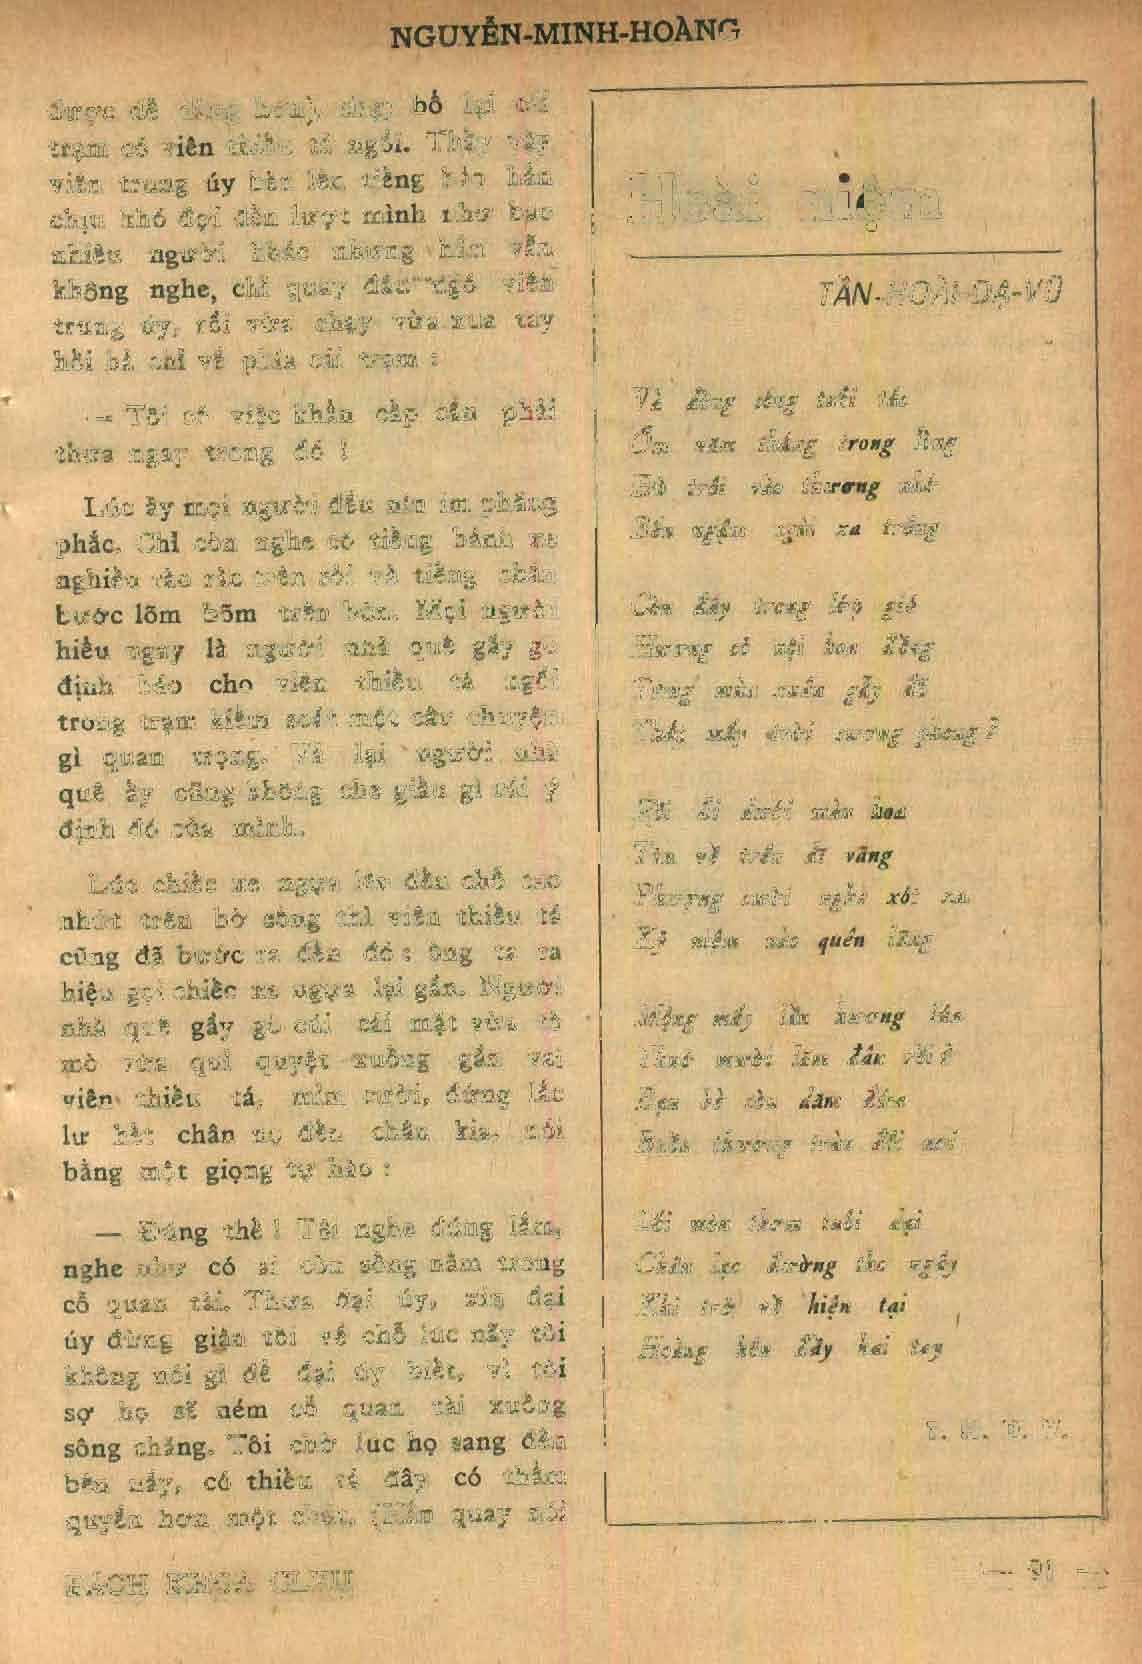 NGUYỄN-MINH-HOÀNG
được để dùng hơn), chạy bổ lại cái
trạm có viên thiếu tá ngồi. Thấy vậy
viên trung úy bèn lên tiếng bảo hắn
chịu khó đợi đến lượt mình như bao
nhiêu người khác nhưng hắn vẫn
không nghe, chỉ quay đầu ngó viên
trung úy, rồi vừa chạy vừa xua tay
hối hả chỉ về phía cái trạm :
— Tôi có việc khẩn cấp cần phải
thưa ngay trong đó !
Lúc ấy mọi người đều nín im phăng
phắc. Chỉ còn nghe có tiếng bánh xe
nghiến rào rạo trên sỏi và tiếng chân
bước lõm bõm trên bùn. Mọi người
hiểu ngay là người nhà quê gầy gò
định báo cho viên thiếu tá ngồi
trong trạm kiểm soát một câu chuyện
gì quan trọng. Vả lại người nhà
quê ấy cũng không che giấu gì cái ý
định đó của mình.
Lúc chiếc xe ngựa lên đến chỗ cao
nhứt trên bờ sông thì viên thiếu tá
cũng đã bước ra đến đó : ông ta ra
hiệu gọi chiếc xe ngựa lại gần. Người
nhà quê gầy gò cúi cái mặt vừa tò
mò vừa quỉ quyệt xuống gần vai
viên thiếu tá, mỉm cười, đứng lắc
lư hết chân nọ đến chân kia, nói
bằng một giọng tự hào :
— Đúng thế ! Tôi nghe đúng lắm,
nghe như có ai còn sống nằm trong
cỗ quan tài. Thưa đại úy, xin đại
úy đừng giận tôi về chỗ lúc nãy tôi
không nói gì để đại úy biết, vì tôi
sợ họ sẽ ném cỗ quan tài xuống
sông chăng. Tôi chờ lúc họ sang đến
bên nầy, có thiếu tá đây có thẩm
quyền hơn một chút. (Hắn quay nói
Hoài niệm
TẦN-HOÀI-DẠ-VŨ
Về dòng sông tuổi tác
Ôm năm tháng trong lòng
trôi vào thương nhớ
Bên ngậm ngùi xa trông
Còn đây trong lớp gió
Hương cỏ nội hoa đồng
Từng mùa xuân gầy đổ
Thác mấy dưới sương phong ?
Rồi đi dưới mùa hoa
Tìm về trên dĩ vãng
Phượng cười nghe xót xa
Kỷ niệm nào quên lãng
Mộng mấy lần hương lửa
Thuở mười lăm đâu rồi ?
Bạn bè còn dăm đứa
Buồn thương tràn đôi môi
Lối mòn thơm tuổi dại
Chân lạc đường thơ ngây
Khi trở về hiện tại
Hoàng hôn đầy hai tay
T. H. D. V.
BÁCH KHOA
— 91 —